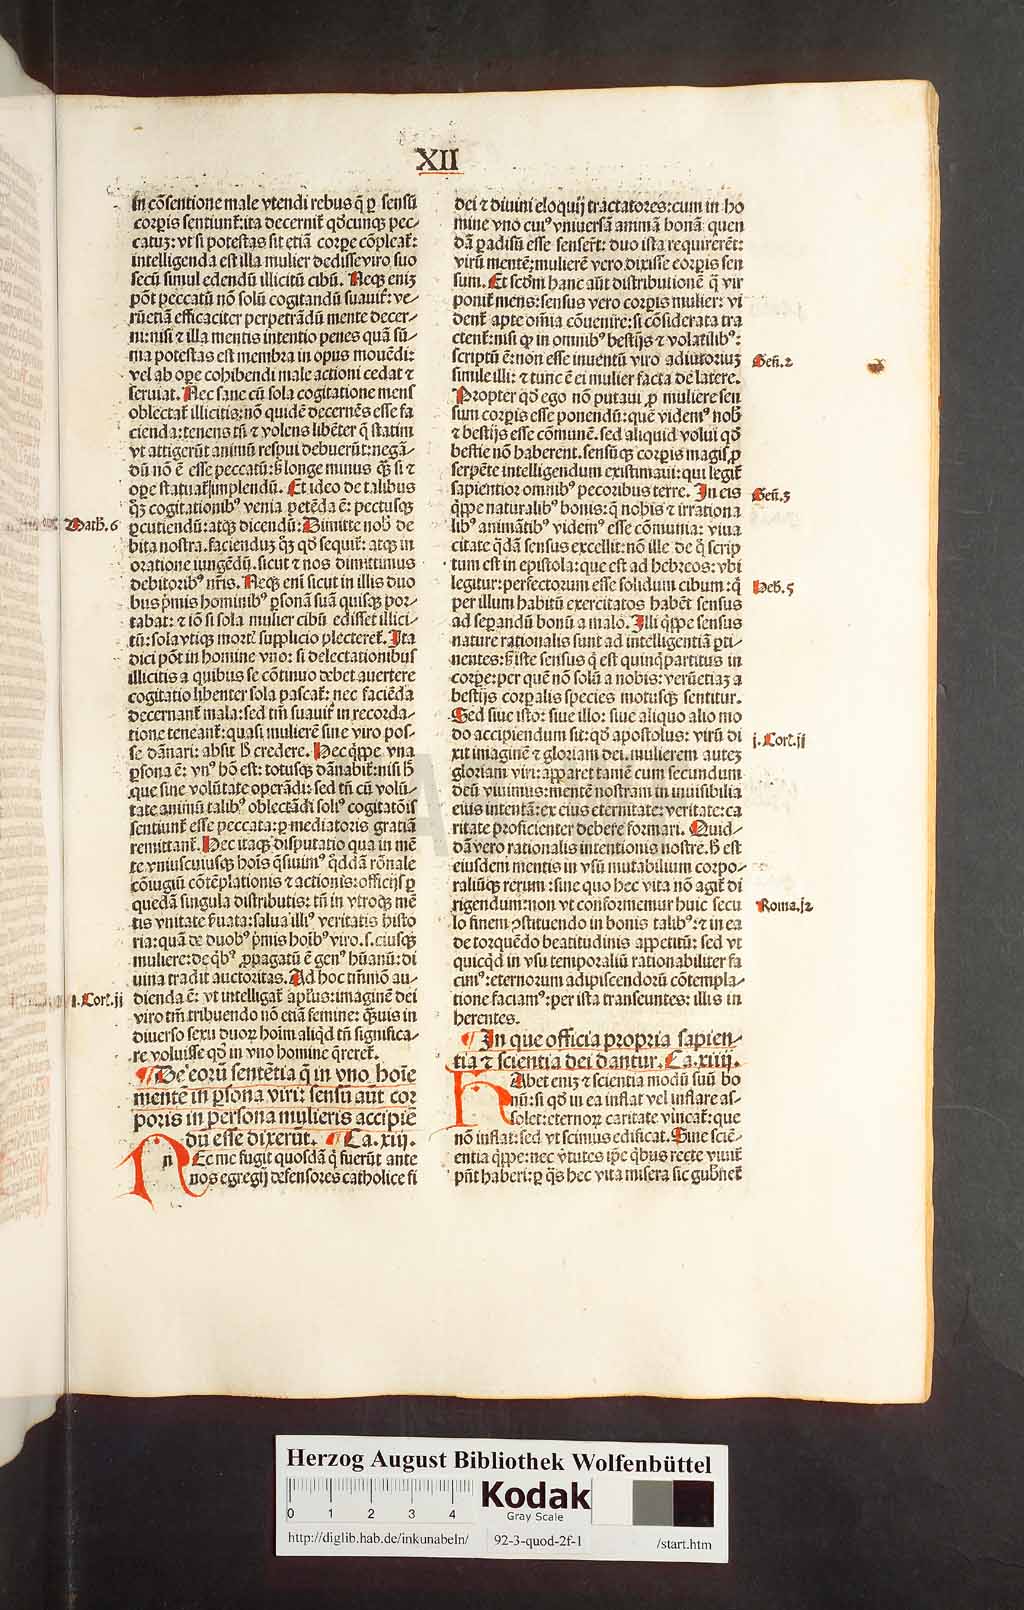 XII
in cõsentione male vtendi rebus q̃ ꝑ sensũ
corpis sentiunt᷑: ita decernit᷑ qd̓cunqꝫ pec-
catuꝫ: vt si potestas sit etiã corpe cõpleat᷑:
intelligenda est illa mulier dedisse viro suo
secũ simul edendũ illicitũ cibũ. Neqꝫ enĩꝫ
põt peccatũ nõ solũ cogitandũ suauit᷑: ve-
rũetiã efficaciter perpetrãdũ mente decer-
ni: nisi ⁊ illa mentis intentio penes quã sũ-
ma potestas est membra in opus mouẽdi:
vel ab ope cohibendi male actioni cedat ⁊
seruiat. Nec sane cũ sola cogitatione mens
oblectat᷑ illicitis: nõ quidẽ decernẽs esse fa
cienda: tenens tñ ⁊ volens libẽter q̃ statim
vt attigerũt animũ respui debuerũt: negã-
dũ nõ ẽ esse peccatũ: sꝫ longe minus qꝫ̃ si ⁊
ope statuat᷑ implendũ. Et ideo de talibus
qꝫ̃ cogitationibꝰ venia petẽda ẽ: pectusqꝫ
Math. 6
ꝑcutiendũ: atqꝫ dicendũ: Dimitte nob̃ de
bita nostra. facienduꝫ qꝫ̃ qd̓ sequit᷑: atqꝫ in
oratione iungẽdũ. sicut ⁊ nos dimittimus
debitoribꝰ nr̃is. Neqꝫ eni sicut in illis duo
bus pͥmis hominibꝰ ꝑsonã suã quisqꝫ por-
tabat: ⁊ iõ si sola mulier cibũ edisset illici-
tũ: sola vtiqꝫ mortͥ supplicio plecteret᷑. Ita
dici põt in homine vno: si delectationibus
illicitis a quibus se cõtinuo debet auertere
cogitatio libenter sola pascat᷑: nec faciẽda
decernant᷑ mala: sed tm̃ suauit᷑ in recorda-
tione teneant᷑: quasi mulierẽ sine viro pos-
se dãnari: absit hͦ credere. Hec qͥppe vna
ꝑsona ẽ: vnꝰ hõ est: totusqꝫ dãnabit᷑: nisi hͦ
que sine volũtate operãdi: sed tñ cũ volũ-
tate animũ talibꝰ oblectãdi solͥꝰ cogitatõis
sentiunt᷑ esse peccata: ꝑ mediatoris gratiã
remittant᷑. Hec itaqꝫ disputatio qua in mẽ
te vniuscuiusqꝫ hoĩs q̃siuimꝰ qd̓dã rõnale
cõiugiũ cõtẽplationis ⁊ actionis: officijs ꝑ
quedã singula distributis: tñ in vtroqꝫ mẽ
tis vnitate ẜuata: salua illiꝰ veritatis histo
ria: quã de duobꝰ pͥmis hoĩbꝰ viro. s. eiusqꝫ
muliere: de qͥbꝰ ꝓpagatũ ẽ genꝰ hũanũ: di
uina tradit auctoritas. Ad hoc tm̃mõ au-
j. Corͥ. ij
dienda ẽ: vt intelligat᷑ apl̃us: imaginẽ dei
viro tm̃ tribuendo nõ etiã femine: qꝫ̃uis in
diuerso sexu duoꝝ hoĩm aliqd̓ tñ significa-
re voluisse qd̓ in vno homine q̃reret᷑.
¶ De eorũ sentẽtia q̃ in vno hoĩe
mentẽ in ꝑsona viri: sensũ aũt cor
poris in persona mulieris accipiẽ
dũ esse dixerũt. ¶ Ca. xiij.
N
n Ec me fugit quosdã q̃ fuerũt ante
nos egregij defensores catholice fi
dei ⁊ diuini eloquij tractatores: cum in ho
mine vno cuiꝰ vniuersã animã bonã quen
dã ꝑadisũ esse sensert᷑: duo ista requirerẽt:
virũ mentẽ; mulierẽ vero dixisse corpis sen
sum. Et scd̓m hanc aũt distributionẽ q̃ vir
ponit᷑ mens: sensus vero corpis mulier: vi
dent᷑ apte oĩa cõuenire: si cõsiderata tra
ctent᷑: nisi qp̃ in omnibꝰ bestijs ⁊ volatilibꝰ:
scriptũ ẽ: non esse inuentũ viro adiutoriuꝫ
Geñ. 2
simile illi: ⁊ tunc ẽ ei mulier facta de latere.
Propter qd̓ ego nõ putaui ꝓ muliere sen
sum corpis esse ponendũ: quẽ videmꝰ nob̃
⁊ bestijs esse cõmunẽ. sed aliquid volui qd̓
bestie nõ haberent. sensũqꝫ corpis magis ꝑ
serpẽte intelligendum existimaui: qui legit᷑
sapientior omnibꝰ pecoribus terre. In eis
Geñ. 3
qͥppe naturalibꝰ bonis: q̃ nobis ⁊ irrationa
libꝰ animãtibꝰ videmꝰ esse cõmunia: viua
citate qͣdã sensus excellit: nõ ille de q̃ scrip
tum est in epistola: que est ad hebreos: vbi
legitur: perfectorum esse solidum cibum: qͥ
Heb̃. 5
per illum habitũ exercitatos habẽt sensus
ad sepandũ bonũ a malo. Illi qͥppe sensus
nature rationalis sunt ad intelligentiã ꝑti-
nentes: sꝫ iste sensus qͥ est quinqꝫpartitus in
corpe: per quẽ nõ solũ a nobis: verũetiaꝫ a
bestijs corpalis species motusqꝫ sentitur.
Sed siue isto: siue illo: siue aliquo alio mo
do accipiendum sit: qd̓ apostolus: virũ di
j. Corͥ. ij
xit imaginẽ ⁊ gloriam dei. mulierem auteꝫ
gloriam viri: apparet tamẽ cum secundum
deũ viuimus: mentẽ nostram in inuisibilia
eius intentã: ex eius eternitate: veritate: ca
ritate proficienter debere formari. Quid-
dã vero rationalis intentionis nostre. hͦ est
eiusdem mentis in vsũ mutabilium corpo-
raliũqꝫ rerum: sine quo hec vita nõ agit᷑ di
rigendum: non vt conformemur huic secu
Roma. j2
lo finem ꝯstituendo in bonis talibꝰ: ⁊ in ea
de torquẽdo beatitudinis appetitũ: sed vt
quicqͥd in vsu temporaliũ rationabiliter fa
cimꝰ: eternorum adipiscendorũ cõtempla-
tione faciamꝰ: per ista transeuntes: illis in
herentes.
¶ In que officia propria sapien-
tia ⁊ scientia dei dantur. Ca. xiiij.
H
Abet enĩꝫ ⁊ scientia modũ suũ bo
nũ: si qd̓ in ea inflat vel inflare as-
solet: eternoꝝ caritate vincat᷑: que
nõ inflat: sed vt scimus edificat. Sine sciẽ-
entia qͥppe: nec vͥtutes ip̃e qͥbus recte viuit᷑
pñt haberi: ꝑ q̃s hec vita misera sic gubñet᷑
Herzog August Bibliothek Wolfenbüttel
0 1 2 3 4
Kodak
Gray Scale
http://diglib.hab.de/inkunabeln/ 92-3-quod-2f-1 /start.htm